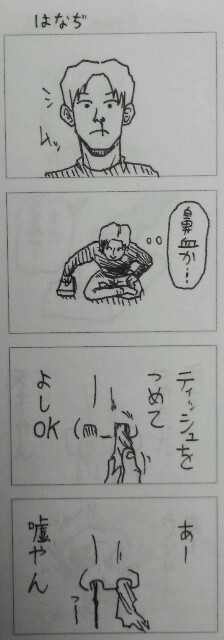 はなぢ
ムッ
鼻血か…
ティッシュを
つめて
よし
OK
あー
嘘やん
つー